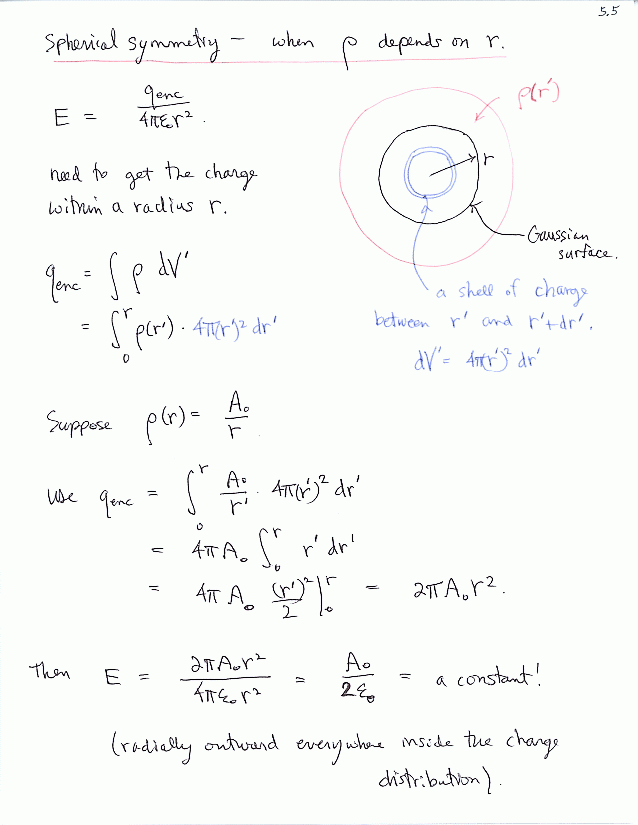 5.5
Spherical symmetry – when ρ depends on r.
E = q_enc / 4πε₀r² .
ρ(r')
r
need to get the charge
within a radius r.
Gaussian
surface.
q_enc = ∫ ρ dV'
= ∫₀^r ρ(r') · 4π(r')² dr'
a shell of charge
between r' and r'+dr'.
dV' = 4π(r')² dr'
Suppose ρ(r) = A₀ / r
Use q_enc = ∫₀^r A₀/r' · 4π(r')² dr'
= 4πA₀ ∫₀^r r' dr'
= 4πA₀ (r')²/2 |₀^r = 2πA₀r².
Then E = 2πA₀r² / 4πε₀r² = A₀ / 2ε₀ = a constant!
(radially outward everywhere inside the charge
distribution).